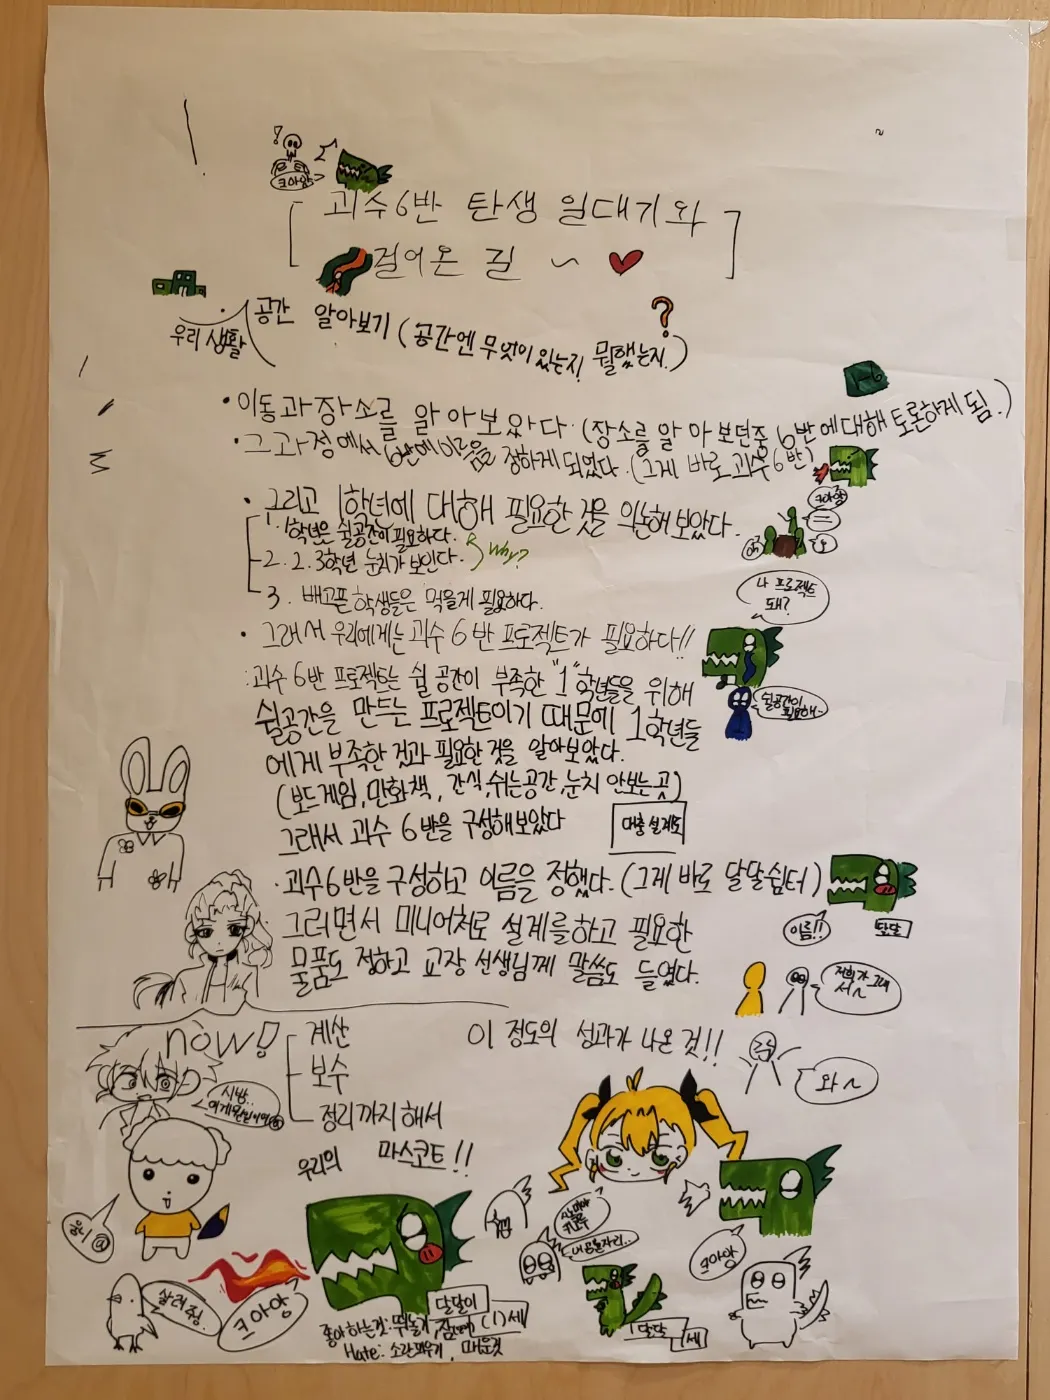 크아앙
[ 괴수6반 탄생 일대기와
걸어온 길 ~ ]
우리 생활 공간 알아보기 (공간엔 무엇이 있는지, 뭘했는지.)
?
1-6
• 이동과 장소를 알아보았다. (장소를 알아보던중 6반에 대해 토론하게 됨.)
• 그 과정에서 6반에 이름을 정하게 되었다. (그게 바로 괴수6반)
크아앙
• 그리고 1학년에 대해 필요한 것을 의논해 보았다.
1. 1학년은 쉴공간이 필요하다.
2. 2.3학년 눈치가 보인다. why?
3. 배고픈 학생들은 먹을게 필요하다.
나 프로젝트 돼?
• 그래서 우리에게는 괴수 6반 프로젝트가 필요하다!!
: 괴수 6반 프로젝트는 쉴 공간이 부족한 "1"학년들을 위해
쉴공간이 필요해~
쉴공간을 만드는 프로젝트이기 때문에 1학년들
에게 부족한 것과 필요한 것을 알아보았다.
(보드게임, 만화책, 간식, 쉬는공간, 눈치 안보는 곳)
그래서 괴수 6반을 구성해보았다
대충 설계도
• 괴수6반을 구성하고 이름을 정했다. (그게 바로 달달쉼터)
이름!!
달달
그러면서 미니어처로 설계를하고 필요한
물품도 정하고 교장 선생님께 말씀도 들였다.
저희가 그래서~
now!
계산
보수
정리까지 해서
이 정도의 성과가 나온 것!!
와~
우리의 마스코트!!
살려줘.
크아앙
크아앙
달달이
(1)세
좋아하는것: 뛰놀기,
Hate: 소란피우기, 매운것
달달
1세